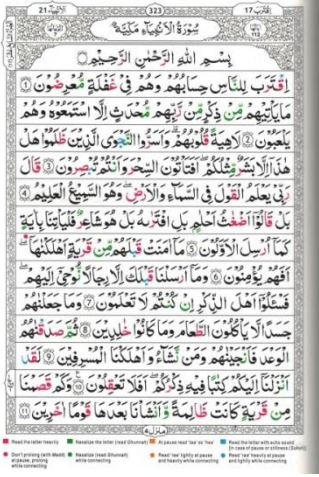 اقترب ١٧ 323 الانبيآء ٢١
سُوْرَةُ الْاَنْۢبِيَآءِ مَكِّيَّةٌ
بِسْمِ اللّٰهِ الرَّحْمٰنِ الرَّحِيْمِ
اِقْتَرَبَ لِلنَّاسِ حِسَابُهُمْ وَهُمْ فِيْ غَفْلَةٍ مُّعْرِضُوْنَ ۝1
مَا يَاْتِيْهِمْ مِّنْ ذِكْرٍ مِّنْ رَّبِّهِمْ مُّحْدَثٍ اِلَّا اسْتَمَعُوْهُ وَهُمْ
يَلْعَبُوْنَ ۝2 لَاهِيَةً قُلُوْبُهُمْ ؕ وَاَسَرُّوا النَّجْوَى الَّذِيْنَ ظَلَمُوْا هَلْ
هٰذَآ اِلَّا بَشَرٌ مِّثْلُكُمْ ۚ اَفَتَاْتُوْنَ السِّحْرَ وَاَنْتُمْ تُبْصِرُوْنَ ۝3 قٰلَ
رَبِّيْ يَعْلَمُ الْقَوْلَ فِي السَّمَآءِ وَالْاَرْضِ ؗ وَهُوَ السَّمِيْعُ الْعَلِيْمُ ۝4
بَلْ قَالُوْٓا اَضْغَاثُ اَحْلَامٍۭ بَلِ افْتَرٰىهُ بَلْ هُوَ شَاعِرٌ ۚ فَلْيَاْتِنَا بِاٰيَةٍ
كَمَآ اُرْسِلَ الْاَوَّلُوْنَ ۝5 مَآ اٰمَنَتْ قَبْلَهُمْ مِّنْ قَرْيَةٍ اَهْلَكْنٰهَا ۚ
اَفَهُمْ يُؤْمِنُوْنَ ۝6 وَمَآ اَرْسَلْنَا قَبْلَكَ اِلَّا رِجَالًا نُّوْحِيْٓ اِلَيْهِمْ
فَسْـَٔلُوْٓا اَهْلَ الذِّكْرِ اِنْ كُنْتُمْ لَا تَعْلَمُوْنَ ۝7 وَمَا جَعَلْنٰهُمْ
جَسَدًا لَّا يَاْكُلُوْنَ الطَّعَامَ وَمَا كَانُوْا خٰلِدِيْنَ ۝8 ثُمَّ صَدَقْنٰهُمُ
الْوَعْدَ فَاَنْجَيْنٰهُمْ وَمَنْ نَّشَآءُ وَاَهْلَكْنَا الْمُسْرِفِيْنَ ۝9 لَقَدْ
اَنْزَلْنَآ اِلَيْكُمْ كِتٰبًا فِيْهِ ذِكْرُكُمْ ؕ اَفَلَا تَعْقِلُوْنَ ۝10 وَكَمْ قَصَمْنَا
مِنْ قَرْيَةٍ كَانَتْ ظَالِمَةً وَّاَنْشَاْنَا بَعْدَهَا قَوْمًا اٰخَرِيْنَ ۝11
منزل ٤
Read the letter heavily Nasalize the letter (read Ghunnah) At pause read 'taa' as 'haa' Read the letter with echo sound
(in case of pause or stillness (Sukon))
Don't prolong (with Madd) Nasalize (read Ghunnah) Read 'raa' lightly at pause Read 'raa' heavily at pause
at pause, prolong while connecting and heavily while connecting and lightly while connecting
while connecting